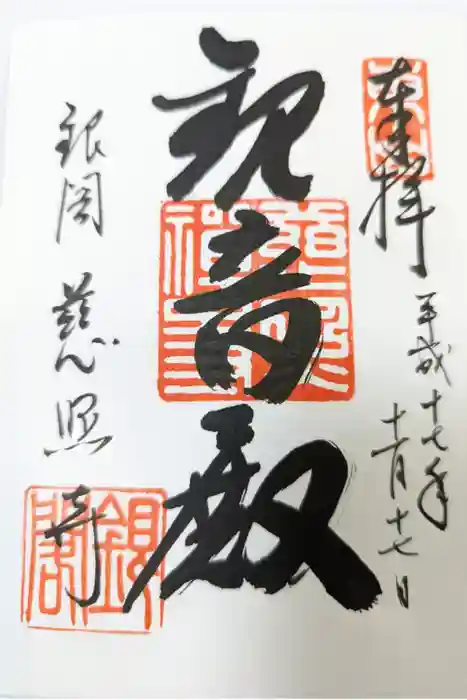 奉拝
平成十七年
十一月十七日
観音殿
銀閣 慈照寺
銀閣